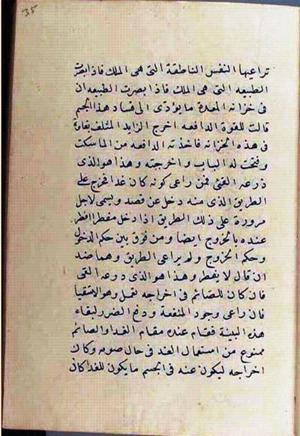 ٣٥
تراعيها النفس الناطقة التى هى الملك فاذا بصرت
الطبيعه التى هى الملك فاذا ابصرت الطبيعه ان
فى خزانه المعدة ما يؤدى الى فساد هذا الجسم
قالت للقوة الدافعه اخرج الزايد المتلف بقاؤه
فى هذه الخزانه فاخذته الدافعه من الماسكه
وفتحت له الباب واخرجته وهذا هو الذى
ذرعه القئ فمن راعى كونه كان غذا فخرج على
الطريق الذى منه دخل عن قصد ويسمى لاجل
مروره على ذلك الطريق اذا دخل مفطرا افطر
عنده بالخروج ايضا ومن فرق بين حكم الدخول
وحكم الخروج ولم يراعى الطريق وهما ضد
ان قال لا يفطر وهذا هو الذى ذرعه القى
فان كان للصائم فى اخراجه تعمل وهو الاستقيا
فان راعى وجود المنفعة ودفع الضرر لبقاء
هذه البنية فقام عنده مقام الغذا والصائم
ممنوع من استعمال الغذ فى حال صومه وكان
اخراجه ليكون عنه فى الجسم ما يكون للغذا كان